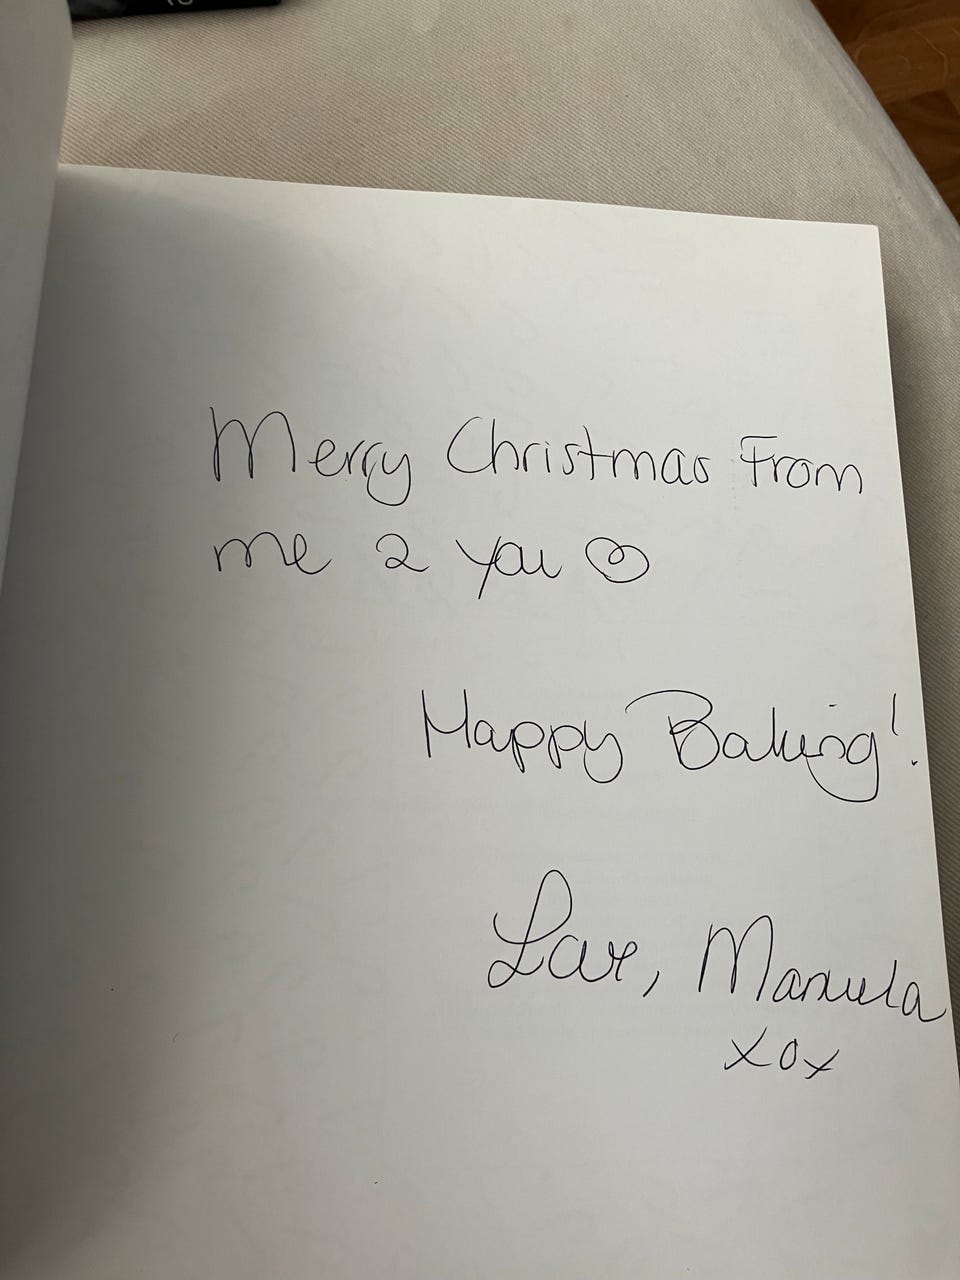 Merry Christmas From
me 2 you ♡
Happy Baking!
Love, Manuela
xox